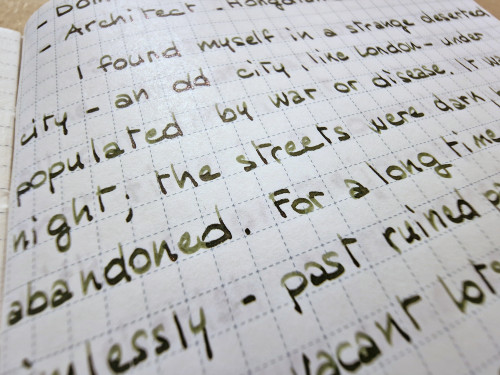 - Architect -
I found myself in a strange deserted
city - an old city, like London - under
populated by war or disease. It
night; the streets were dark
abandoned. For a long time
- past ruined
vacant lots